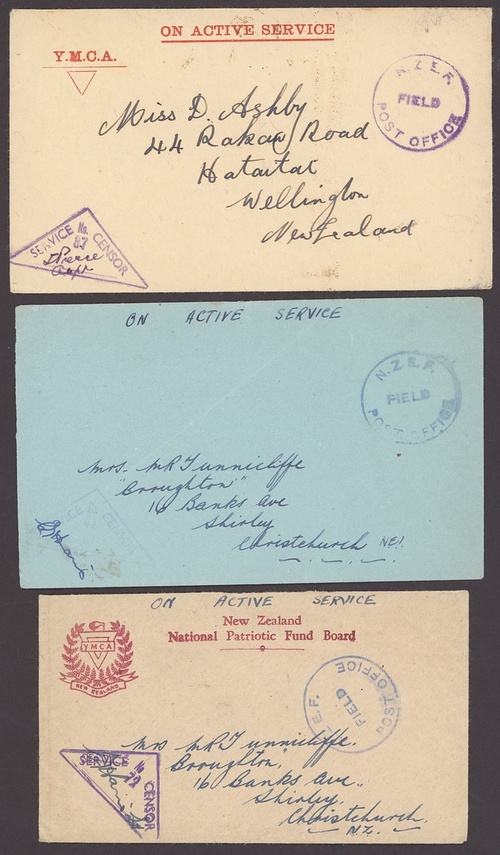 ON ACTIVE SERVICE
Y.M.C.A.
N.Z.E.F.
FIELD
POST OFFICE
Miss D. Ashby
44 Rakau Road
Hataitai
Wellington
New Zealand
SERVICE No. 87 CENSOR
Capt
ON ACTIVE SERVICE
N.Z.E.F.
FIELD
POST OFFICE
Mrs. M R Tunnicliffe
"Broughton"
16 Banks Ave
Shirley
Christchurch NZ.
ON ACTIVE SERVICE
New Zealand
National Patriotic Fund Board
YMCA
NEW ZEALAND
Z.E.F.
FIELD
POST OFFICE
Mrs M R Tunnicliffe.
Broughton,
16 Banks Ave.,
Shirley,
Christchurch.
N.Z.
SERVICE No. 72 CENSOR